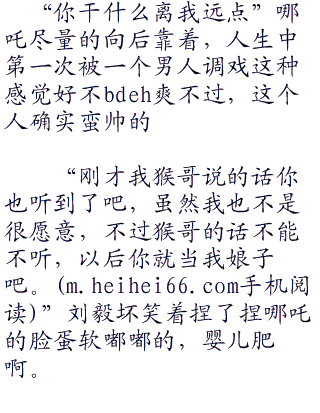 “你干什么离我远点”哪
吒尽量的向后靠着，人生中
第一次被一个男人调戏这种
感觉好不bdeh爽不过，这个
人确实蛮帅的
“刚才我猴哥说的话你
也听到了吧，虽然我也不是
很愿意，不过猴哥的话不能
不听，以后你就当我娘子
吧。(m.heihei66.com手机阅
读)”刘毅坏笑着捏了捏哪吒
的脸蛋软嘟嘟的，婴儿肥
啊。